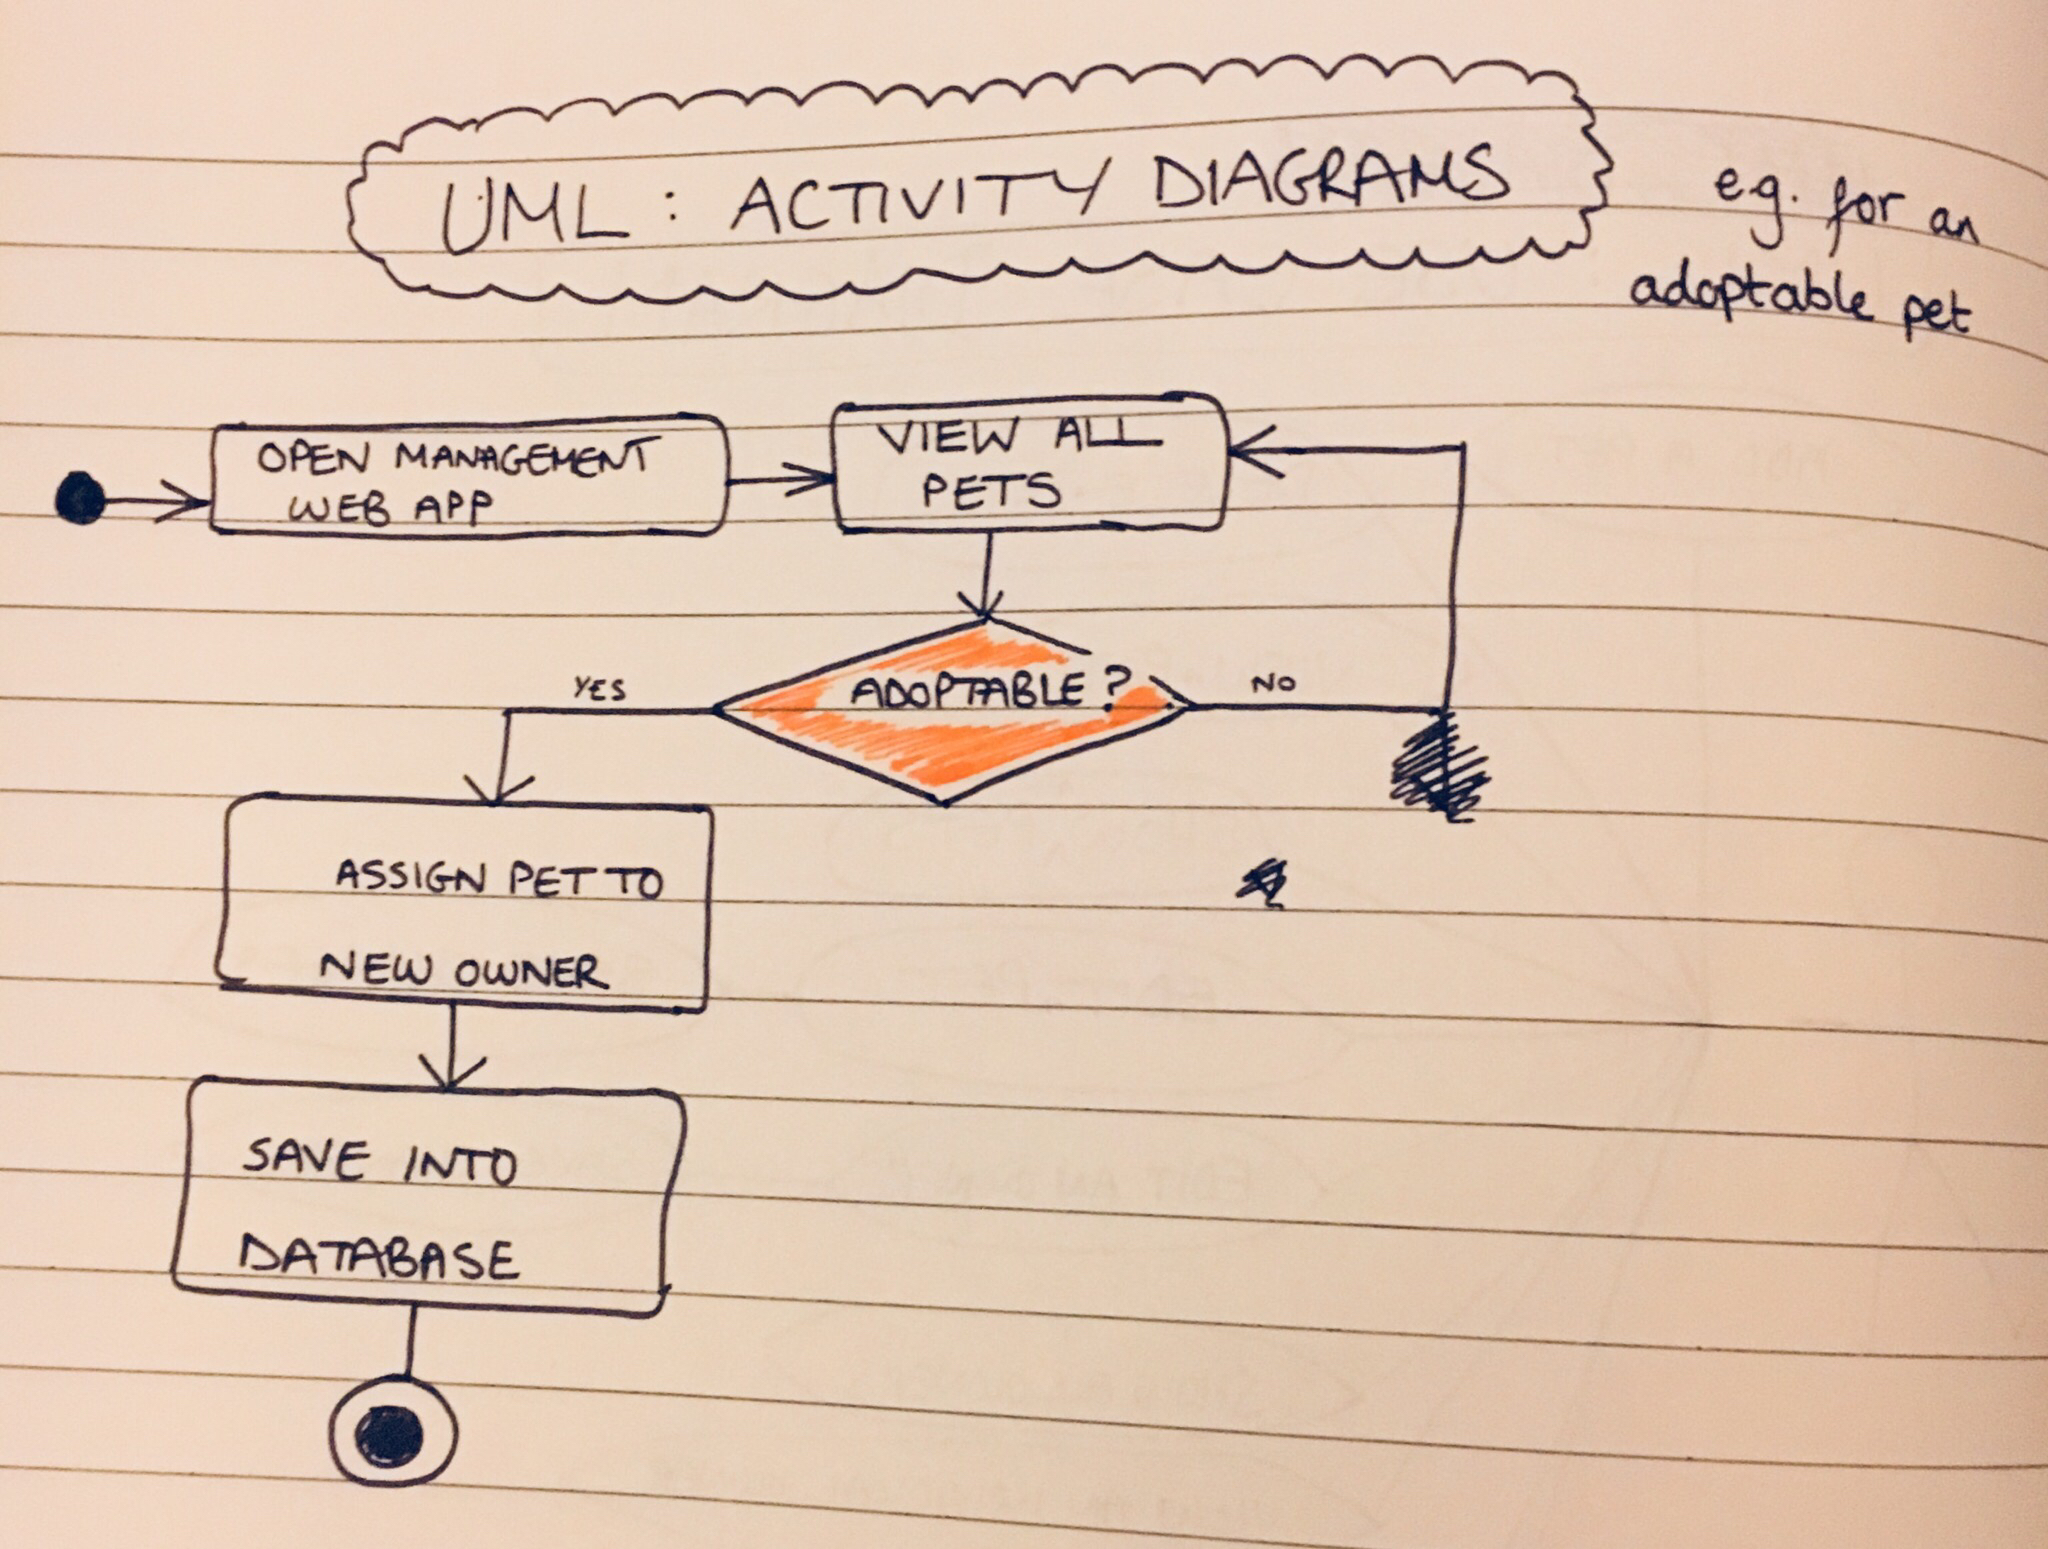 UML : ACTIVITY DIAGRAMS
e.g. for an
adoptable pet
OPEN MANAGEMENT
WEB APP
VIEW ALL
PETS
ADOPTABLE ?
YES
NO
ASSIGN PET TO
NEW OWNER
SAVE INTO
DATABASE